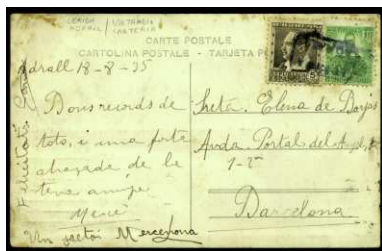 CARTE POSTALE
CARTOLINA POSTALE - TARJETA
Adrall 18-8-35
Bons records de
tots, i una forta
abraçada de la
teva amiga
Mercè
Un petó
Felicitats
Srta. Elena de
Avda. Portal del Angel,
1-2ª
Barcelona